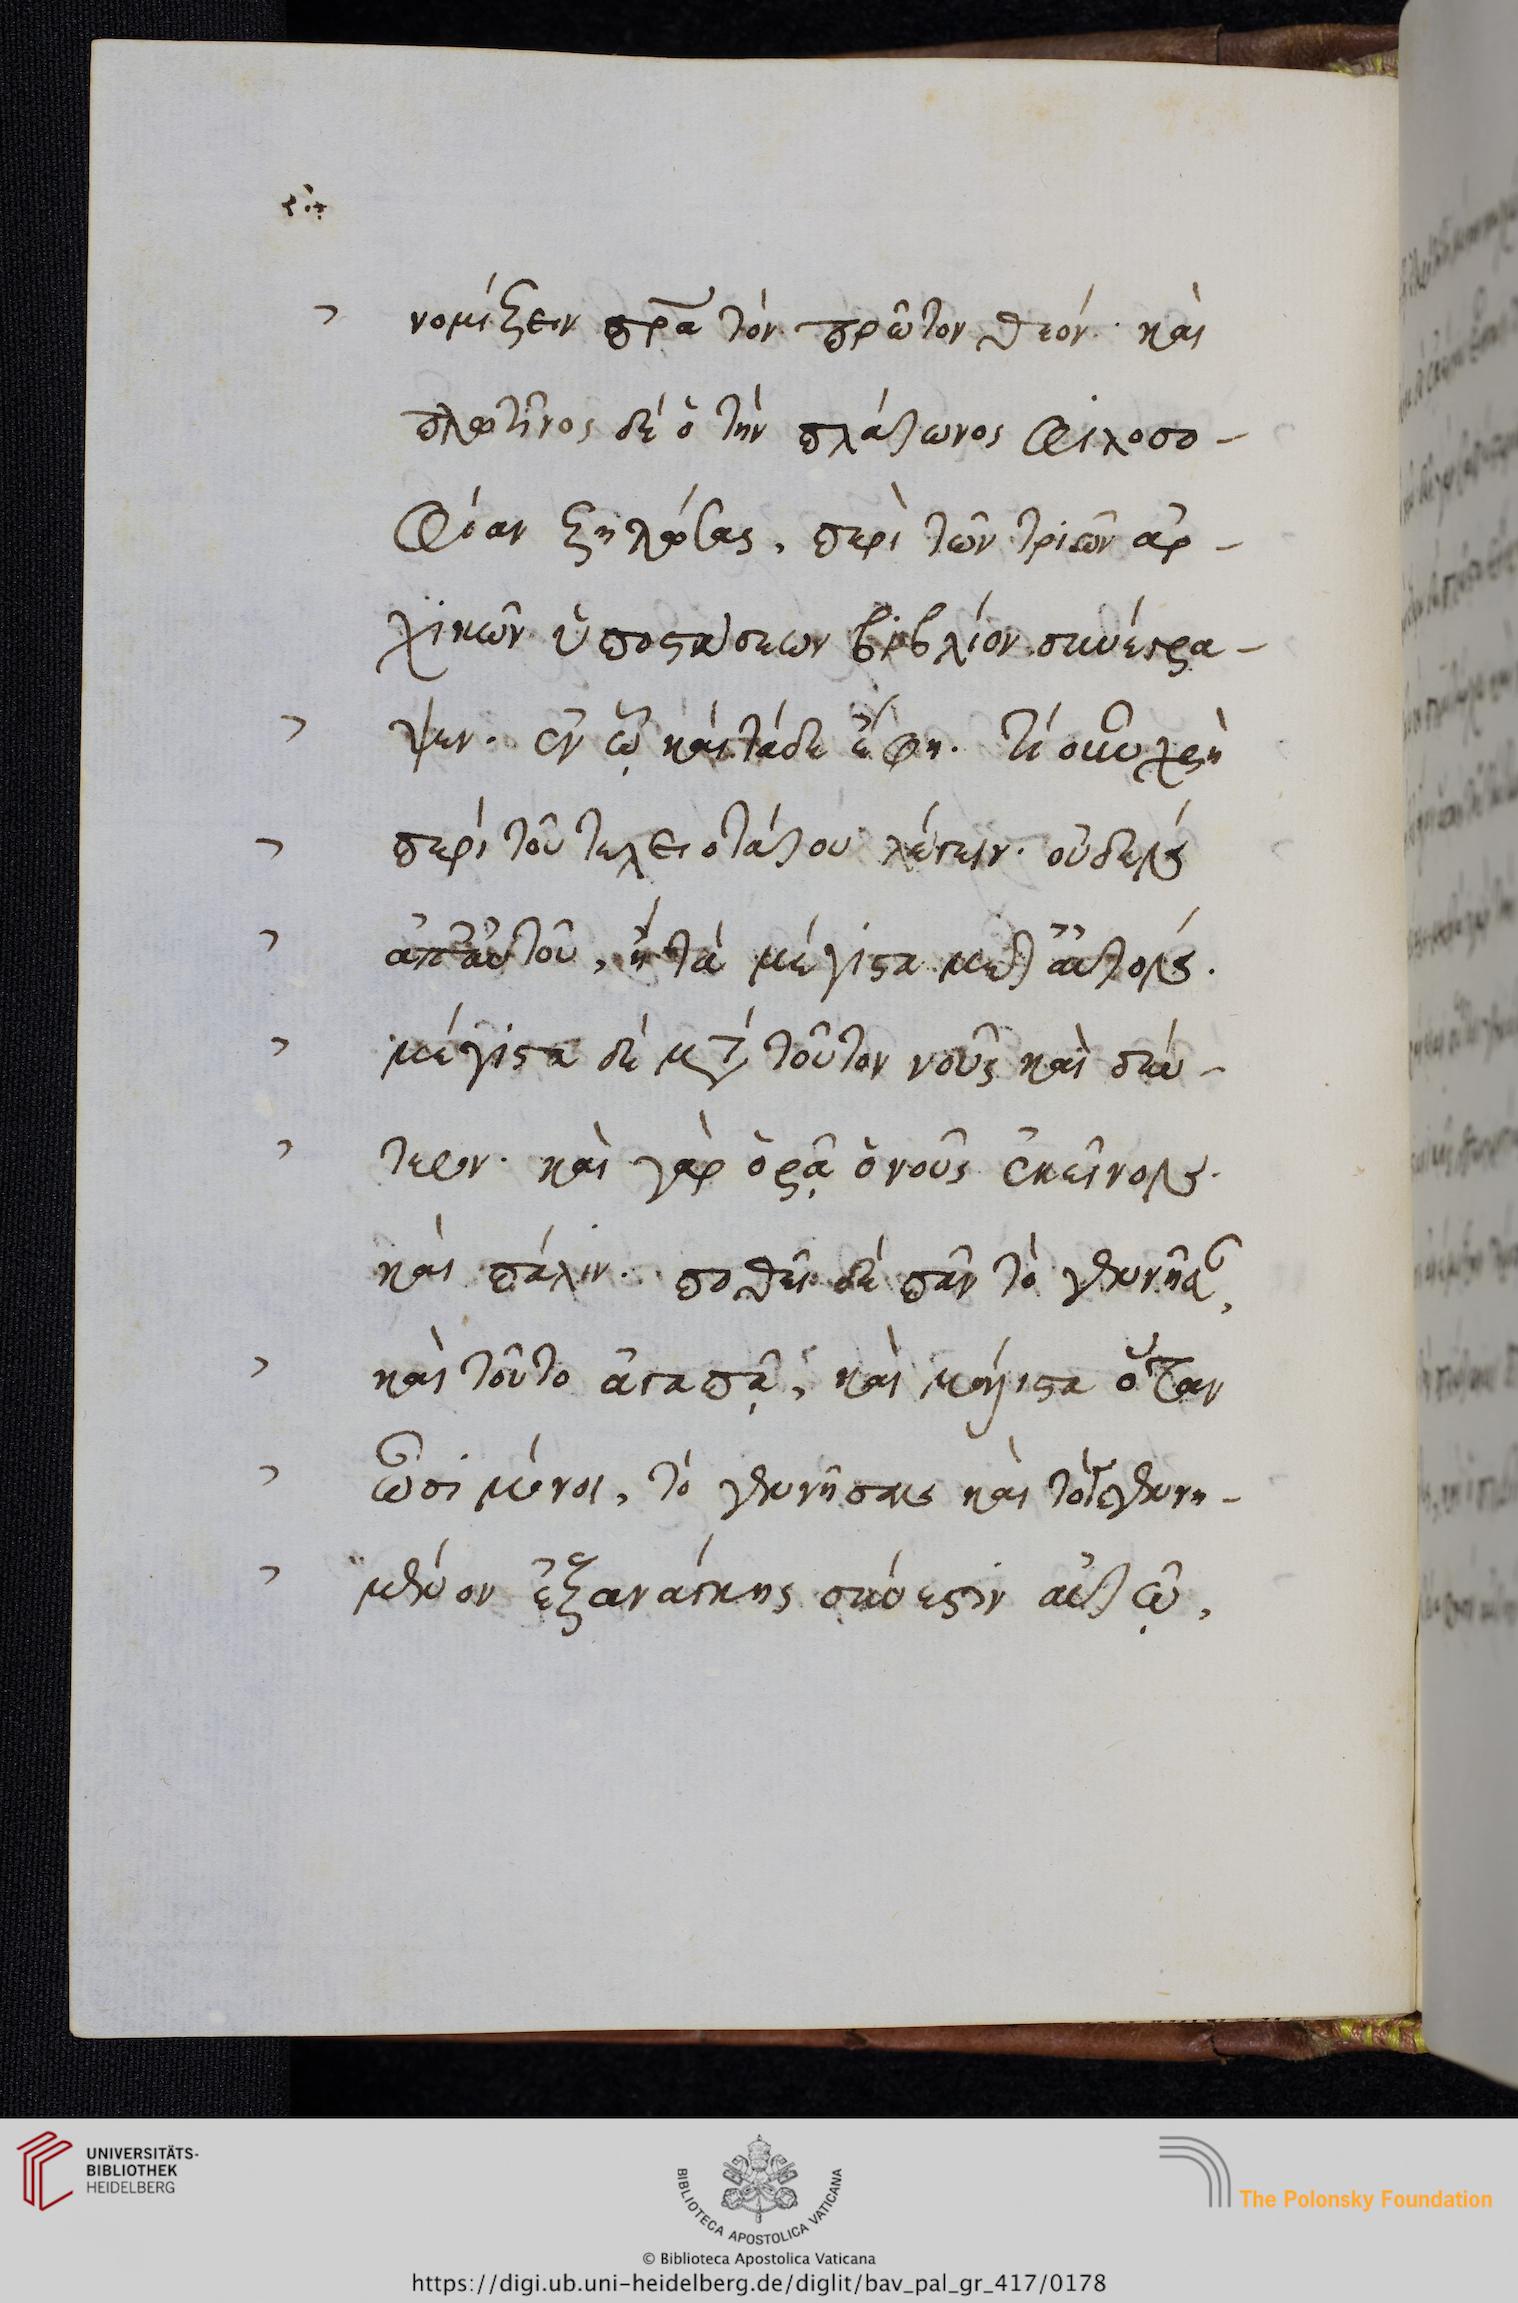 νομίζειν πρ̅α τὸν πρῶτον θεόν· καὶ
πλωτῖνος δὲ ὁ τὴν πλάτωνος φιλοσο-
φίαν ζηλώσας, περὶ τῶν τριῶν ἀρ-
χικῶν ὑποστάσεων βιβλίον συνέγρα-
ψεν. ἐν ᾧ καὶ τάδε ἔφη. τί οὖν χρὴ
περὶ τοῦ τελειοτάτου λέγειν. οὐδεὶς
ἀπ' αὐτοῦ, ἢ τὰ μέγιστα μετ' αὐτοῖς.
μέγιστα δὲ μετ τοῦτον νοῦς καὶ δεύ-
τερον. καὶ γὰρ ὁρᾷ ὁ νοῦς ἐκεῖνοις.
καὶ πάλιν. ποθεῖ δὲ πᾶν τὸ γεννῆσαν,
καὶ τοῦτο ἀγαπᾷ, καὶ μάλιστα ὅταν
ὦσι μόνοι, τὸ γεννῆσαν καὶ τὸ γεγενη-
μένον ἐξανάγκης σύνεστιν αὐτῷ,
UNIVERSITÄTS-
BIBLIOTHEK
HEIDELBERG
BIBLIOTECA APOSTOLICA VATICANA
The Polonsky Foundation
© Biblioteca Apostolica Vaticana
https://digi.ub.uni-heidelberg.de/diglit/bav_pal_gr_417/0178